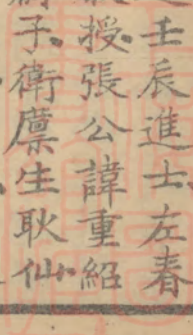 壬辰進士左春
授張公諱重紹
子衛廩生耿仙